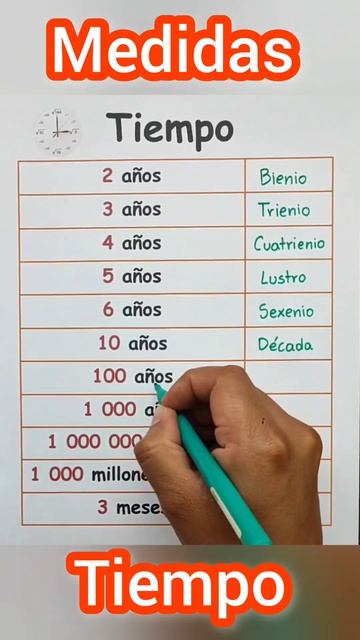 Medidas
Tiempo
2 años Bienio
3 años Trienio
4 años Cuatrienio
5 años Lustro
6 años Sexenio
10 años Década
100 años
1 000
1 000 000
1 000
3
Tiempo